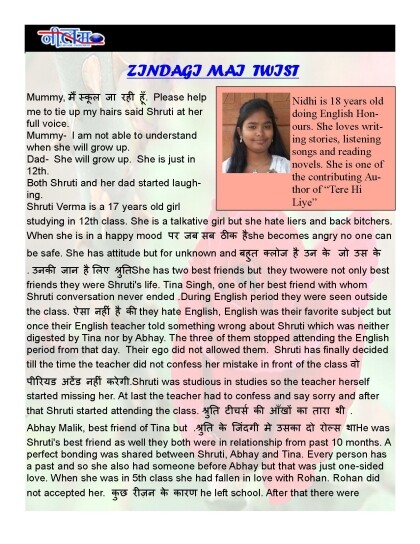 नीलम
ZINDAGI MAI TWIST
Mummy, मैं स्कूल जा रही हूँ. Please help
me to tie up my hairs said Shruti at her
full voice.
Mummy- I am not able to understand
when she will grow up.
Dad- She will grow up. She is just in
12th.
Both Shruti and her dad started laugh-
ing.
Shruti Verma is a 17 years old girl
Nidhi is 18 years old
doing English Hon-
ours. She loves writ-
ing stories, listening
songs and reading
novels. She is one of
the contributing Au-
thor of “Tere Hi
Liye”
studying in 12th class. She is a talkative girl but she hate liers and back bitchers.
When she is in a happy mood पर जब सब ठीक हैshe becomes angry no one can
be safe. She has attitude but for unknown and बहुत क्लोज है उन के जो उस के
. उनकी जान है लिए श्रुतिShe has two best friends but they twowere not only best
friends they were Shruti's life. Tina Singh, one of her best friend with whom
Shruti conversation never ended .During English period they were seen outside
the class. ऐसा नहीं है की they hate English, English was their favorite subject but
once their English teacher told something wrong about Shruti which was neither
digested by Tina nor by Abhay. The three of them stopped attending the English
period from that day. Their ego did not allowed them. Shruti has finally decided
till the time the teacher did not confess her mistake in front of the class वो
पीरियड अटेंड नहीं करेगी.Shruti was studious in studies so the teacher herself
started missing her. At last the teacher had to confess and say sorry and after
that Shruti started attending the class. श्रुति टीचर्स की आँखों का तारा थी .
Abhay Malik, best friend of Tina but .श्रुति के जिंदगी मे उसका दो रोल्स थाHe was
Shruti's best friend as well they both were in relationship from past 10 months. A
perfect bonding was shared between Shruti, Abhay and Tina. Every person has
a past and so she also had someone before Abhay but that was just one-sided
love. When she was in 5th class she had fallen in love with Rohan. Rohan did
not accepted her. कुछ रीज़न के कारण he left school. After that there were